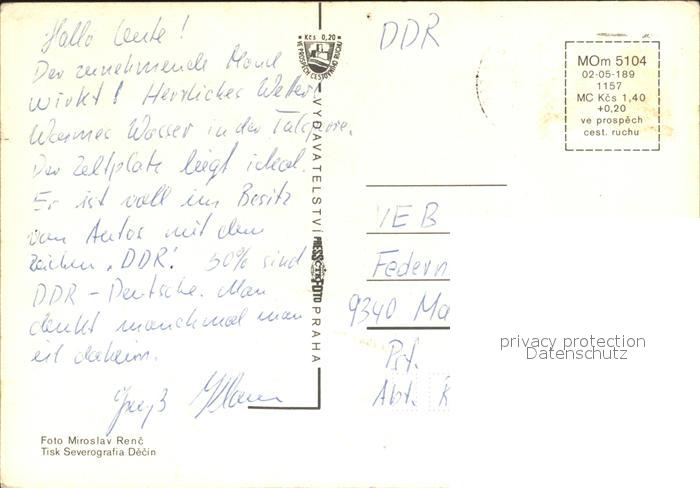 Hallo Leute!
Der zunehmende Mond
wirkt! Herrliches Wetter.
Warmes Wasser in der Talsperre.
Der Zeltplatz liegt ideal.
Er ist voll im Besitz
von Autos mit dem
Zeichen „DDR“. 50% sind
DDR-Deutsche. Man
denkt manchmal man
ist daheim.
Gruß
Foto Miroslav Renč
Tisk Severografia Děčín
Kčs 0,20
VE PROSPĚCH CESTOVNÍHO RUCHU
VYDAVATELSTVÍ PRESSFOTO PRAHA
DDR
MOm 5104
02-05-189
1157
MC Kčs 1,40
+0,20
ve prospěch
cest. ruchu
VEB
Federn
9340 Ma
Abt. K
privacy protection
Datenschutz